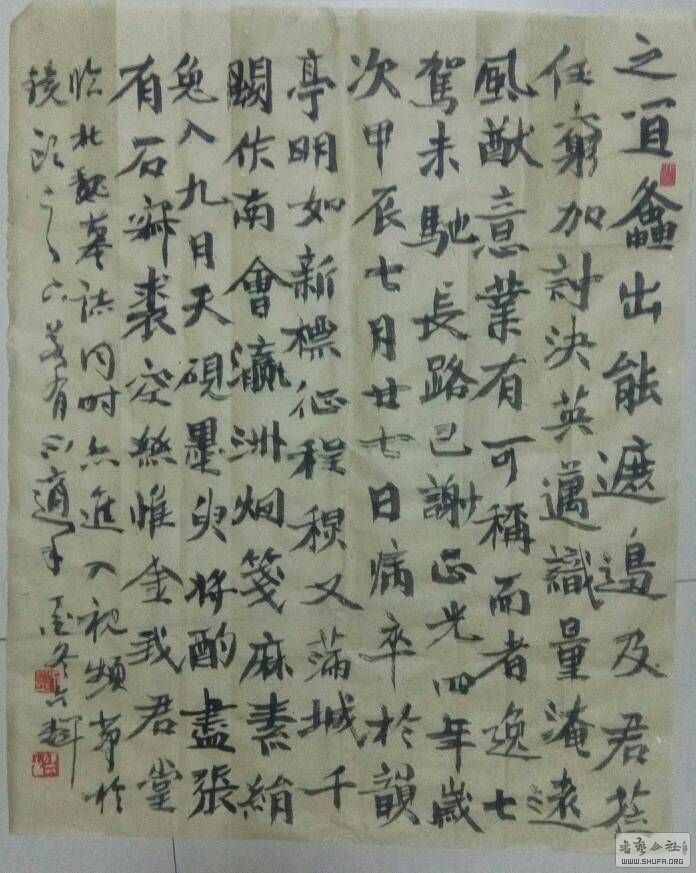 之酋蠡出能遮邊及君蒞
任窮加討決英邁識量淹遠
風猷意業有可稱而者逸七
駕未馳長路已謝正光四年歲
次甲辰七月廿七日病卒於韻
亭明如新標征程穆又蒲城千
賜作南會瀛洲烟箋麻素絹
兔入九月天硯墨臾將酌盡張
有石寀裘空絲惟金我君堂
臨北魏墓誌同時亦進入視頻筆於
鏡頭之下若有不適手
書艺公社
WWW.SHUFA.ORG